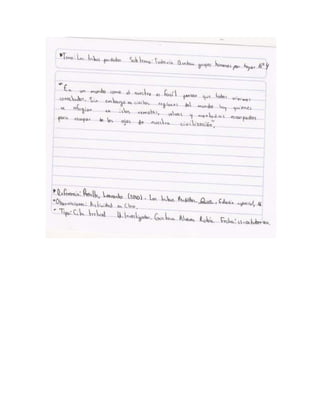 *Tema: Las tribus perdidas Sub tema: Todavía Quedan grupos humanos por
"En un mundo como el nuestro es fácil pensar que todos vivimos
conectados. Sin embargo en ciertas regiones del mundo hay quienes
se refugian en islas remotas, selvas y montañas
para escapar de los ojos de nuestra civilización".
*Referencia: Leonardo Las tribus Perdidas, Edición especial,
*Observaciones: Actividad en Clase.
- Tipo: Cita textual Investigador: Gustavo Fecha: